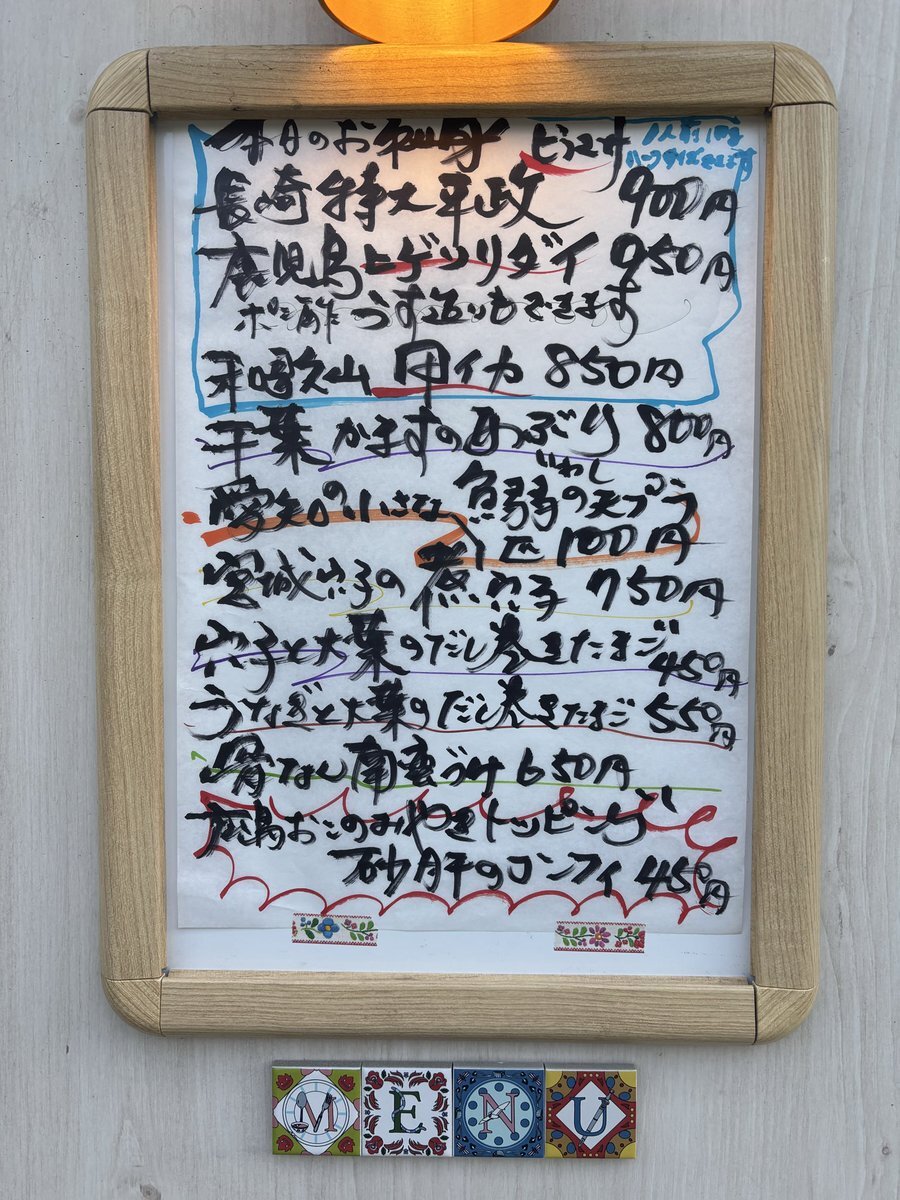 本日のお刺身 ヒラマサ 1人前1000 ハーフサイズできます
長崎 特大平政 900円
鹿児島 ヒゲソリダイ 950円
ポン酢 うす造りもできます
和歌山 甲イカ 850円
千葉 かますのあぶり 800円
いわし
愛知の小さな鰯の天プラ
1匹100円
宮城穴子の煮穴子 750円
穴子と大葉のだし巻きたまご 450円
うなぎと大葉のだし巻きたまご 550円
骨なし南蛮づけ 650円
広島おこのみやきトッピング
砂肝のコンフィ 450円
MENU